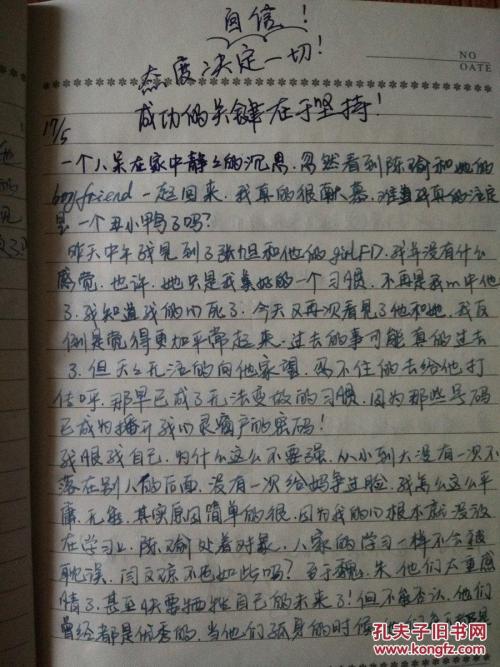 自信！
态度决定一切！
NO
DATE
成功的关键在于坚持！
17/5
一个人呆在家中静静的沉思，忽然看到陈瑜和她的
boyfriend一起回来，我真的很羡慕，难道我真的注定
是一个丑小鸭了吗？
昨天中午我见到了张旭和他的girlFD，我并没有什么
感觉，也许，她只是我美好的一个习惯，不再是我心中他
了，我知道我的心死了，今天又再次看见了他和她，我反
倒是觉得更加平常起来，过去的事可能真的过去
了，但天天无法的向他家望，忍不住的去给他打
传呼，那早已成了无法变故的习惯，因为那些号码
已成为播开我心灵窗户的密码！
我恨我自己，为什么这么不要强，从小到大没有一次不
落在别人的后面，没有一次给妈争过脸，我怎么这么平
庸，无能，其实原因简单的很，因为我的心根本就没放
在学习上，陈瑜处着对象，人家的学习一样不会被
耽误，闫文琼不也如此吗？至于魏，朱他们太重感
情了，甚至快要牺牲自己的未来了！但不能否认，他们
曾经都是优秀的，当他们孤身的时候
孔夫子旧书网
kongfz.com